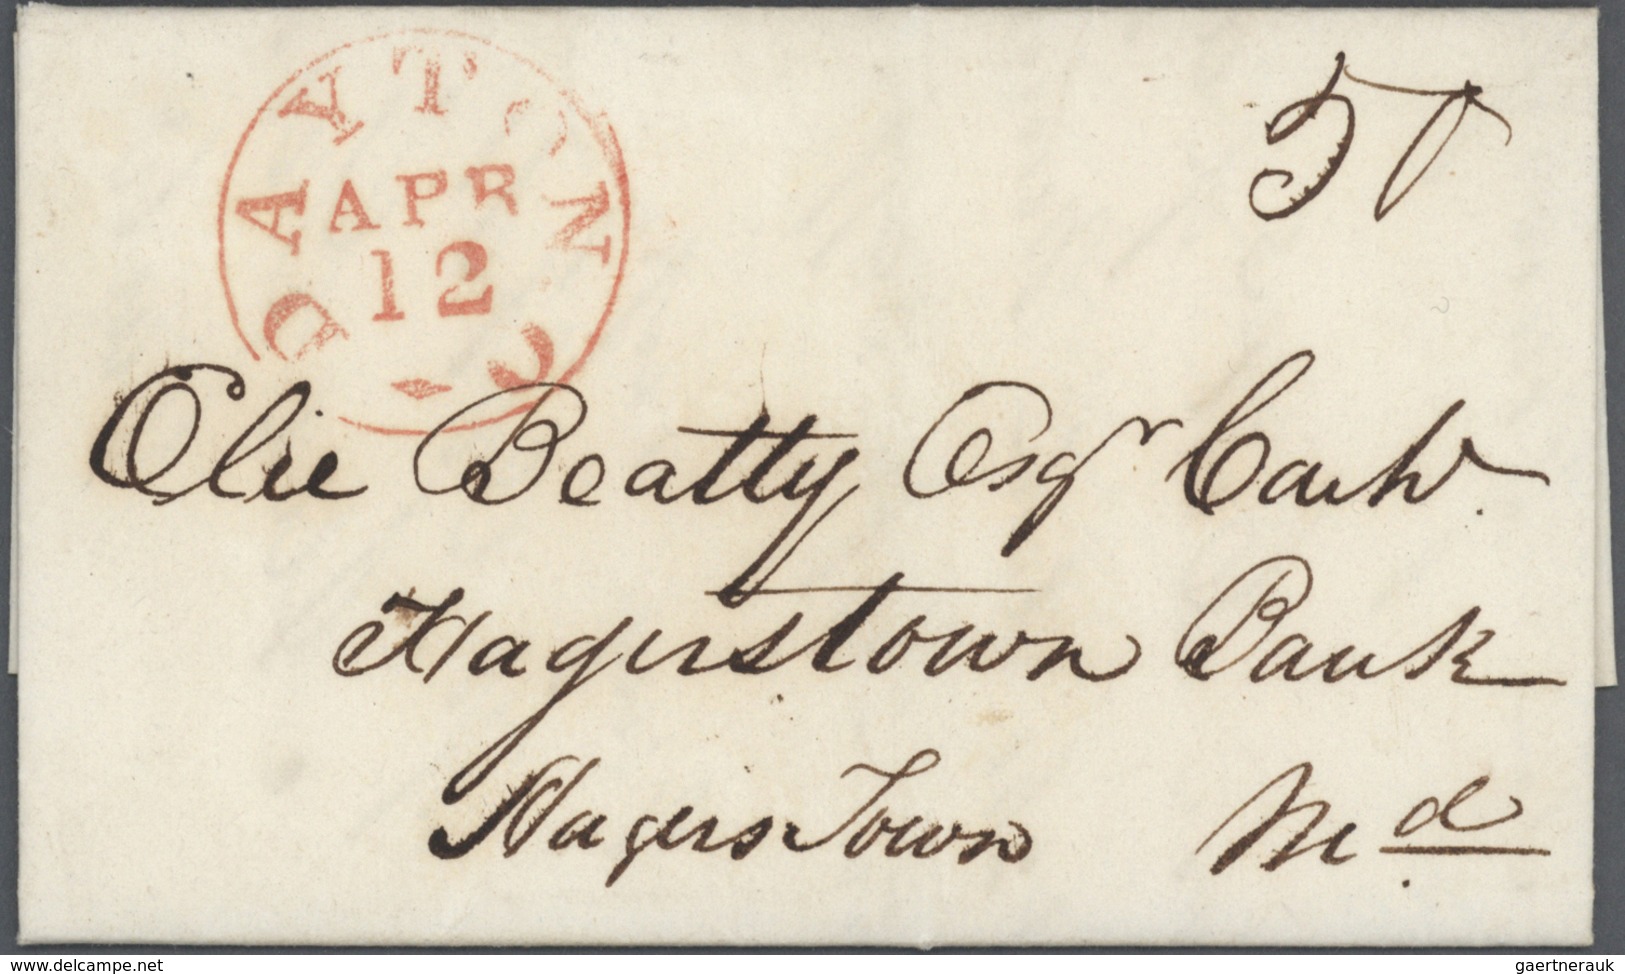 DAYTON O
APR
12
50
Elie Beatty Esqr Cashr.
Hagerstown Bank
Hagers Town Md
www.delcampe.net
gaertnerauk